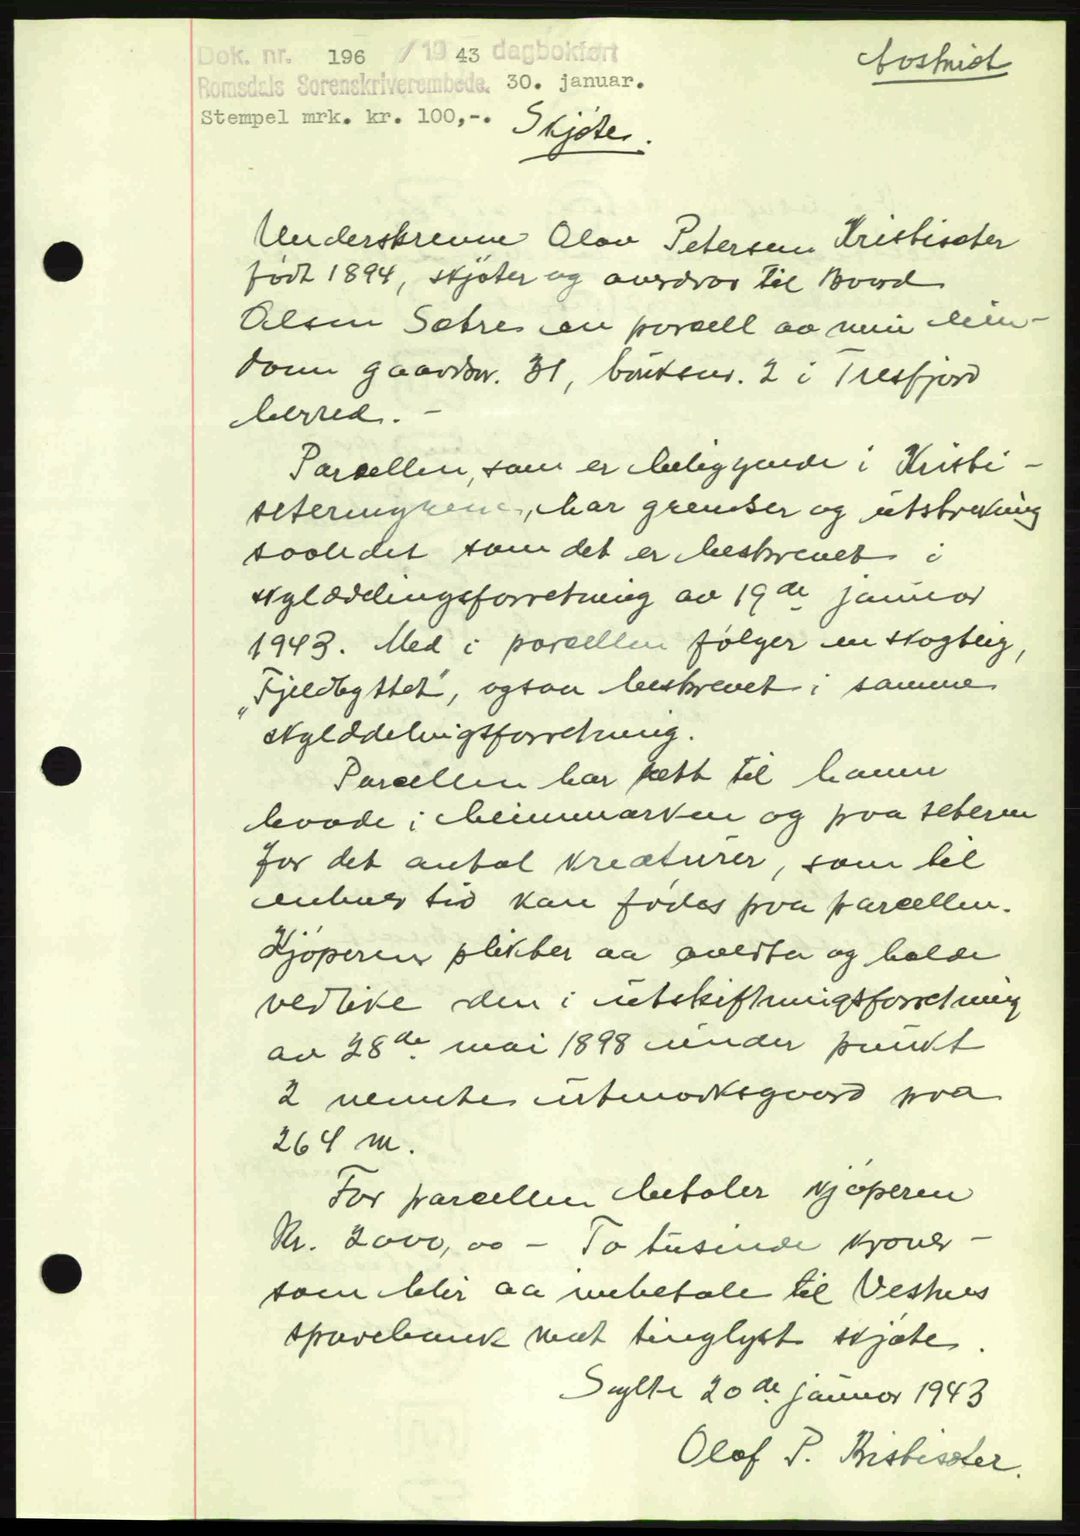 Dok. nr. 196 /1943 dagbokført
Avskrift
Romsdals Sorenskriverembede. 30. januar.
Stempel mrk. kr. 100,-.
Skjøte.
Underskrevne Olav Petersen Kristisæter
født 1894, skjøter og avrdrar til Baard
Olsen Sætre en parcell av min eien-
dom gaardsnr. 31, bruksnr. 2 i Tresfjord
herred. -
Parcellen, som er beliggende i Kristi-
seteringrene, har grenser og utstrekning
saaledet som det er beskrevet i
skylddelingsforretning av 19de januar
1943. Med i parcellen følger en skogteig,
"Fjeldbyttet", ogsaa beskrevet i samme
skylddelingsforretning.
Parcellen har rett til hamn
baade i heimmarken og paa seteren
for det antal kreaturer, som til
enhver tid kan fødes paa parcellen.
Kjøperen plikter aa avløta og holde
vedlike den i utskiftningsforretning
av 28de mai 1898 under punkt
2 nemnte utmarksgaard paa
264 m.
For parcellen betaler kjøperen
Kr. 2000,00 - To tusinde kroner -
som blir aa inbetale til Vestnes
sparebank mot tinglyst skjøte.
Sylte 20de januar 1943
Olaf P. Kristisæter.